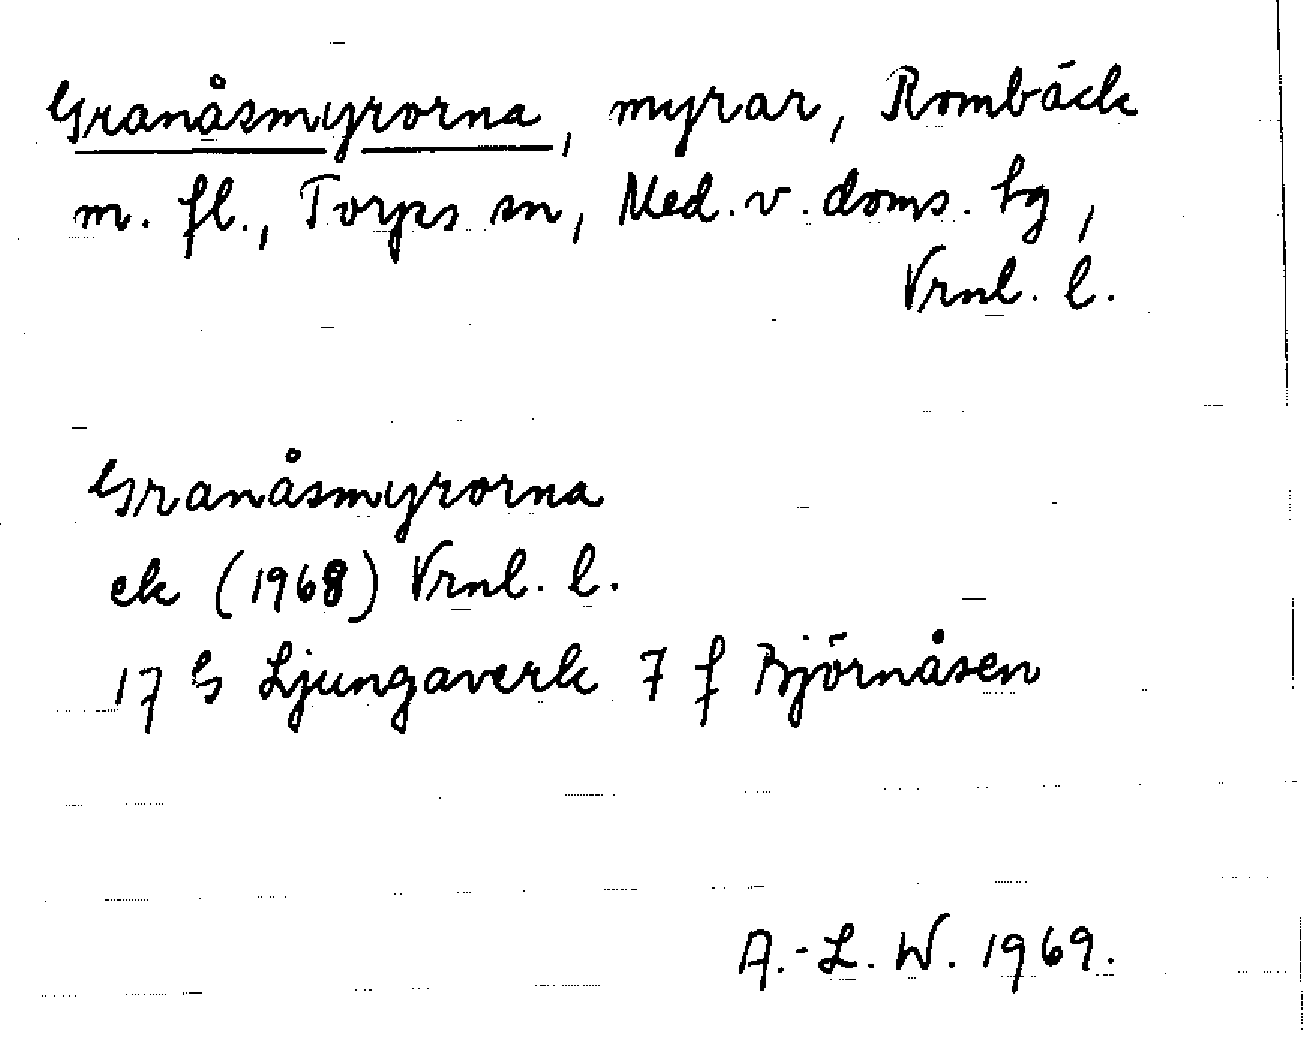 Granåsmyrorna, myrar, Rombäck
m. fl., Torps sn, Med. v. doms. tg,
Vrnl. l.
Granåsmyrorna
ek (1968) Vrnl. l.
17 G Ljungaverk 7 f Björnåsen
A.-L. W. 1969.